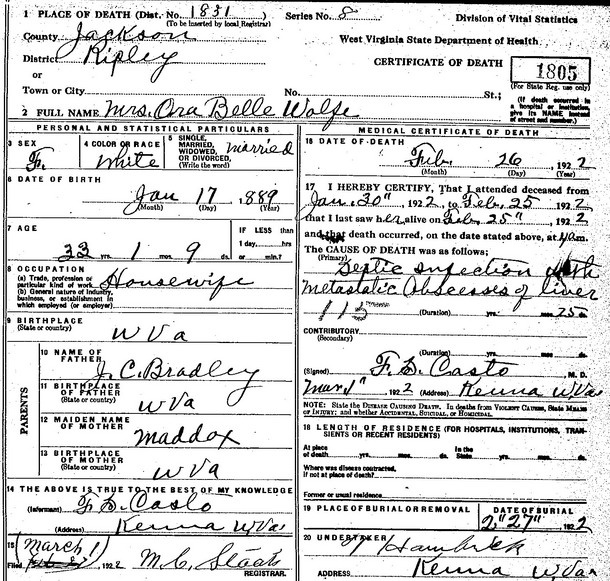 1 PLACE OF DEATH (Dist. No. 1831 Series No. 8 Division of Vital Statistics
(To be inserted by local Registrar)
County Jackson West Virginia State Department of Health
District Ripley CERTIFICATE OF DEATH 1805
or (For State Reg. use only)
Town or City No. St.; (If death occurred in a hospital or institution, give its NAME instead of street and number.)
2 FULL NAME Mrs. Ora Belle Wolfe
PERSONAL AND STATISTICAL PARTICULARS
3 SEX F. 4 COLOR OR RACE White 5 SINGLE, MARRIED, WIDOWED, OR DIVORCED, (Write the word) Married
6 DATE OF BIRTH Jan 17, 1889
(Month) (Day) (Year)
7 AGE 33 yrs. 1 mos. 9 ds. IF LESS than 1 day, hrs or min.?
8 OCCUPATION
(a) Trade, profession or particular kind of work Housewife
(b) General nature of industry, business, or establishment in which employed (or employer)
9 BIRTHPLACE
(State or country) W Va
PARENTS
10 NAME OF FATHER J. C. Bradley
11 BIRTHPLACE OF FATHER
(State or country) W Va
12 MAIDEN NAME OF MOTHER Maddox
13 BIRTHPLACE OF MOTHER
(State or country) W Va
14 THE ABOVE IS TRUE TO THE BEST OF MY KNOWLEDGE
(Informant) F. L. Casto
(Address) Kenna W Va
15 (March 1
1922 M. C. Staats
REGISTRAR.
MEDICAL CERTIFICATE OF DEATH
16 DATE OF DEATH
Feb. 26, 1922
(Month) (Day) (Year)
17 I HEREBY CERTIFY, That I attended deceased from
Jan. 30", 1922, to Feb. 25 1922
that I last saw her alive on Feb. 25" 1922
and that death occurred, on the date stated above, at m.
The CAUSE OF DEATH was as follows:
(Primary) Septic infection with
Metastatic Abscesses of liver
(Duration) yrs. mos. 25 ds.
CONTRIBUTORY
(Secondary)
(Duration) yrs. mos. ds.
(Signed) F. L. Casto M. D.
Mar. 1" 1922 (Address) Kenna W Va
NOTE: State the DISEASE CAUSING DEATH. In deaths from VIOLENT CAUSES, State MEANS OF INJURY; and whether ACCIDENTAL, SUICIDAL, or HOMICIDAL.
18 LENGTH OF RESIDENCE (FOR HOSPITALS, INSTITUTIONS, TRANSIENTS OR RECENT RESIDENTS)
At place of death yrs. mos. ds. In the State yrs. mos. ds.
Where was disease contracted, if not at place of death?
Former or usual residence
19 PLACE OF BURIAL OR REMOVAL DATE OF BURIAL
2" 27" 1922
20 UNDERTAKER Hambrick
ADDRESS Kenna W Va